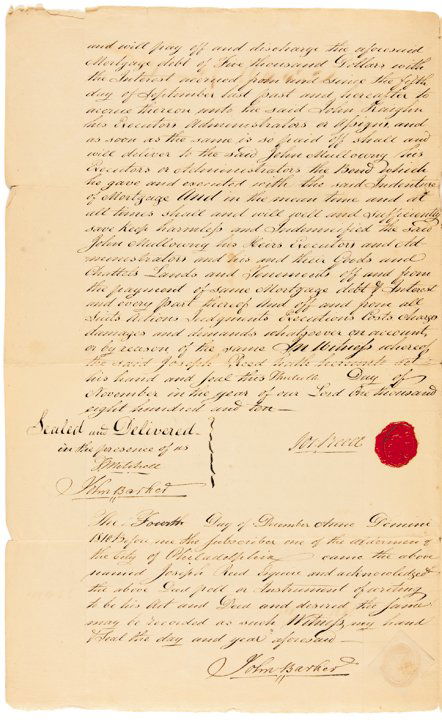 and will pay off and discharge the aforesaid
Mortgage debt of Five thousand Dollars with
the Interest accrued from and since the fifth
day of September last past and hereafter to
accrue thereon unto the said John
his Executors Administrators or Assigns and
as soon as the same is so paid off shall and
will deliver to the said John Mullowny his
Executors or Administrators the Bond which
he gave and executed with his said Indenture
of Mortgage And in the mean time and at
all times shall and will well and sufficiently
save keep harmless and Indemnified the said
John Mullowny his Heirs Executors and Ad
ministrators and his and their Goods and
Chattels Lands and Tenements off and from
the payment of same Mortgage debt & Interest
and every part thereof and off and from all
Suits Actions Judgments Executions Costs charges
damages and demands whatsoever on account
or by reason of the same In Witness whereof
the said Joseph Reed hath hereunto set
his hand and seal this Day of
November in the year of our Lord One thousand
eight hundred and ten —
Sealed and Delivered
in the presence of us
Jos. Reed
John Barker
The Fourth Day of December Anno Domini
1810 Before me the subscriber one of the aldermen of
the City of Philadelphia came the above
named Joseph Reed Esquire and acknowledged
the above Deed poll or Instrument of writing
to be his Act and Deed and desired the same
may be recorded as such Witness my hand
& Seal the day and year aforesaid —
John Barker